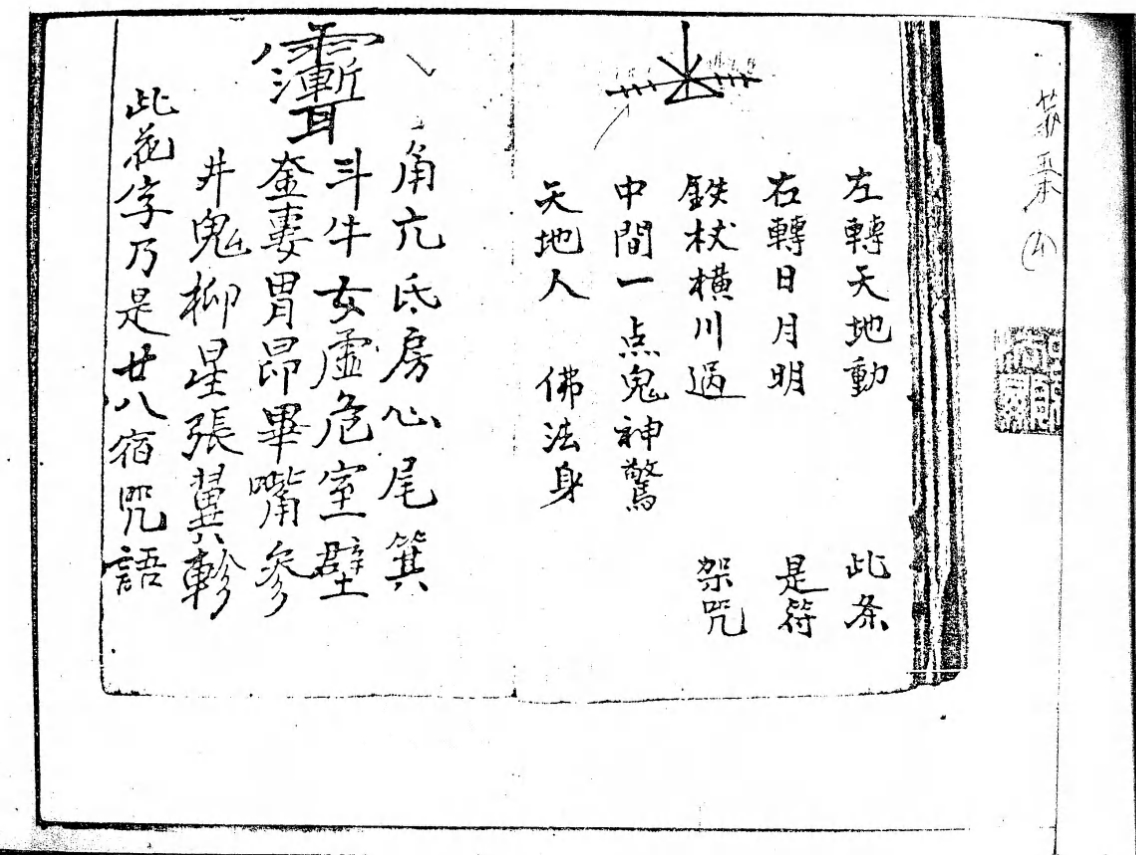 左轉天地動 此条
右轉日月明 是符
鉄杖横川過 架咒
中間一点鬼神驚
天地人 佛法身
角亢氐房心尾箕
斗牛女虛危室壁
奎婁胃昴畢嘴參
井鬼柳星張翼軫
此花字乃是廿八宿咒語